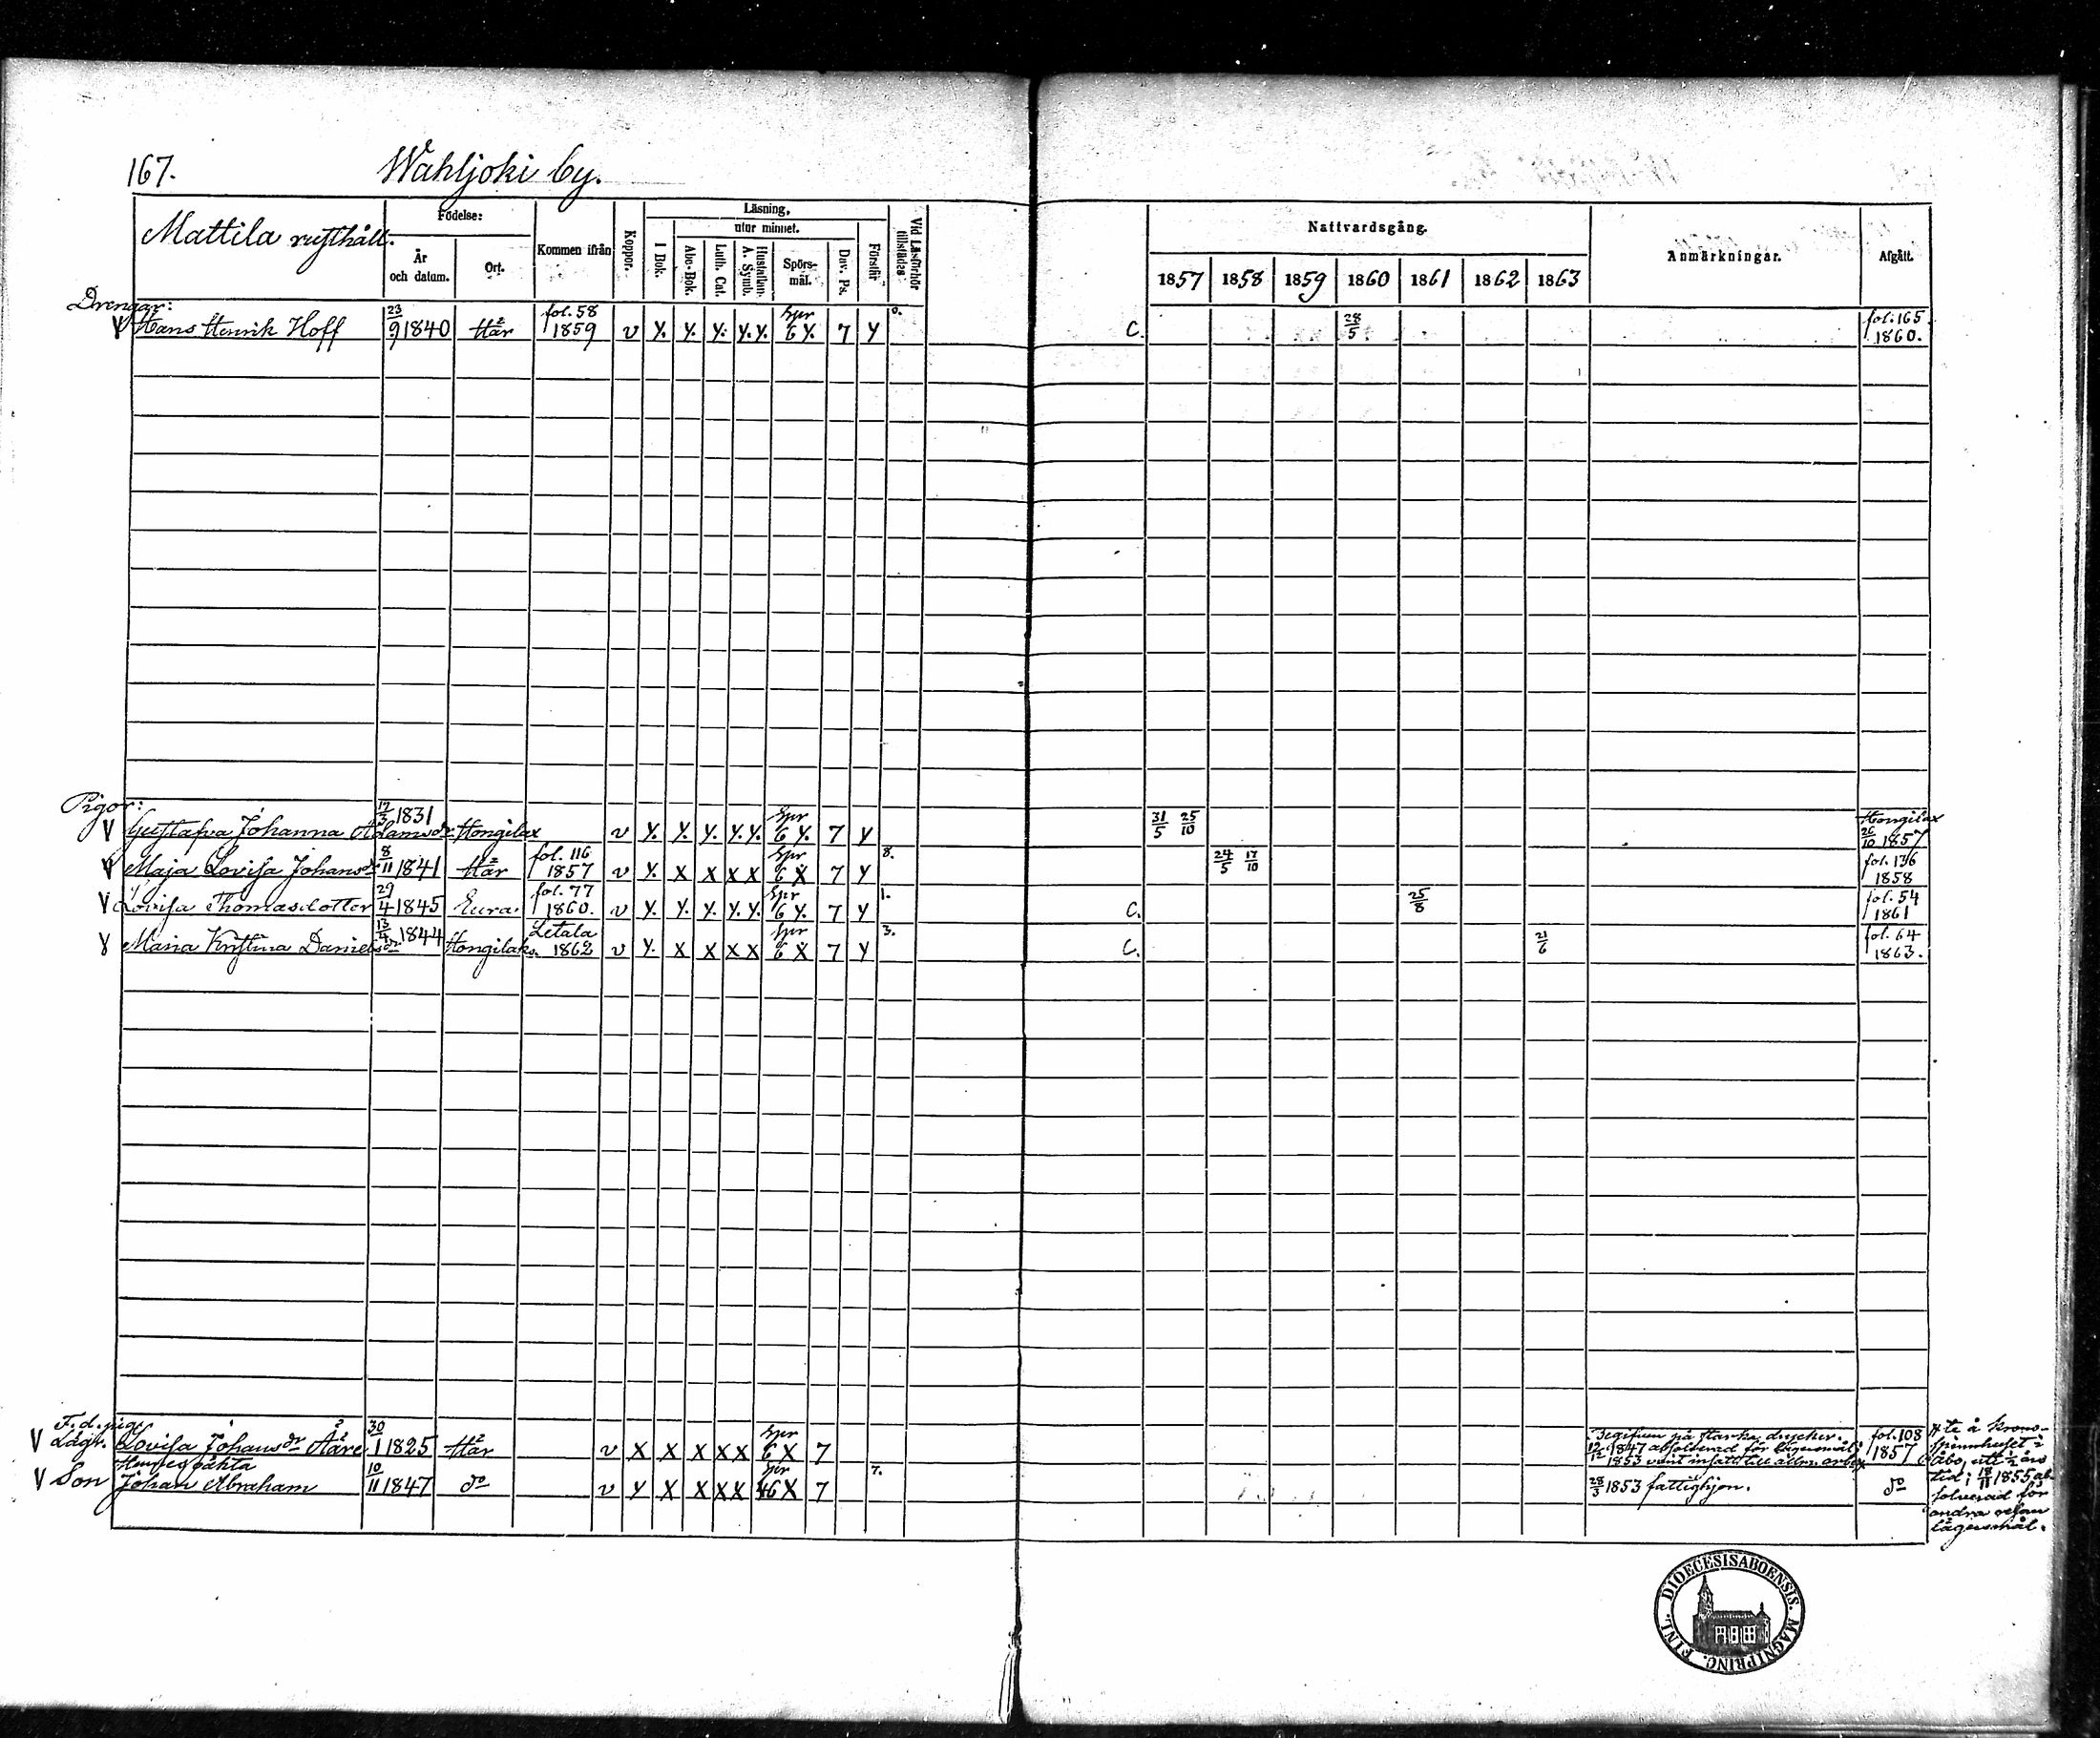 167. Wahljoki by.
Mattila rusthåll.
Födelse:
År och datum.
Ort.
Kommen ifrån
Koppor.
Läsning,
I Bok.
utur minnet.
Abc-Bok.
Luth. Cat.
Hustaflan. A. Symb.
Spörs-mål.
Dav. Ps.
Förstår
Vid Läsförhör tillstädes
Nattvardsgång.
1857 1858 1859 1860 1861 1862 1863
Anmärkningar.
Afgått.
Drengar:
V Hans Henrik Hoff 23/9 1840 Här fol. 58 1859 v Y. Y. Y. Y. Y. Spr 6 Y. 7 Y 0. C. 28/5 fol. 165. 1860.
Pigor:
V Gustafva Johanna Adamsdr 17/3 1831 Hongilax v Y. Y. Y. Y. Y. Spr 6 Y. 7 Y 31/5 25/10 Hongilax 26/10 1857
V Maja Lovisa Johansdr 8/11 1841 Här fol. 116 1857 v Y. X X X X Spr 6 X 7 Y 8. 24/5 17/10 fol. 136 1858
V Lovisa Thomasdotter 29/4 1845 Eura. fol. 77 1860. v Y. Y. Y. Y. Y. Spr 6 Y. 7 Y 1. C. 25/8 fol. 54 1861
Y Maria Kristina Danielsdr 13/4 1844 Hongilaks. Letala 1862 v Y. X X X X Spr 6 X 7 Y 3. C. 21/6 fol. 64 1863.
F. d. piga
V Lägr. Lovisa Johansdr Ååre 30/1 1825 Här v X X X X X Spr 6 X 7 fol. 108 1857
Begifven på starka drycker.
12/12 1847 absolverad för lägersmål;
1853 varit insatt till allm. arbete
å Krono-
spinnhuset i
Åbo, ett ½ års
tid; 18/11 1855 ab-
solverad för
andra resan
lägersmål.
V Son Johan Abraham 10/11 1847 do v Y X X X X Spr 46 X 7 7. 28/5 1853 fattighjon. do
DIOECESIS ABOENSIS. MAGNI PRINC. FINL.